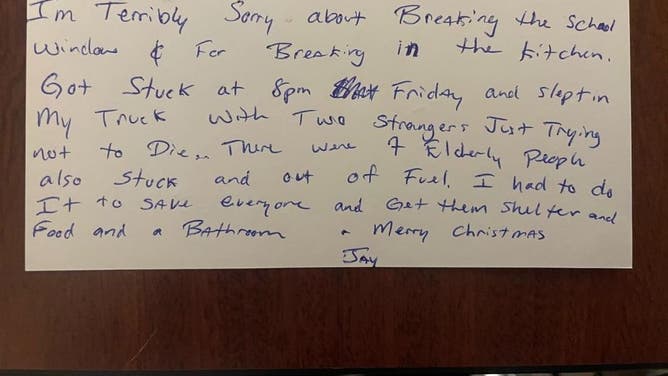 Im Terribly Sorry about Breaking the School
Window & For Breaking in the Kitchen.
Got Stuck at 8pm Friday and slept in
My Truck with Two Strangers Just Trying
not to Die... There were 7 Elderly People
also stuck and out of Fuel. I had to do
It to SAVE everyone and Get them shelter and
Food and a Bathroom - Merry Christmas
JAY